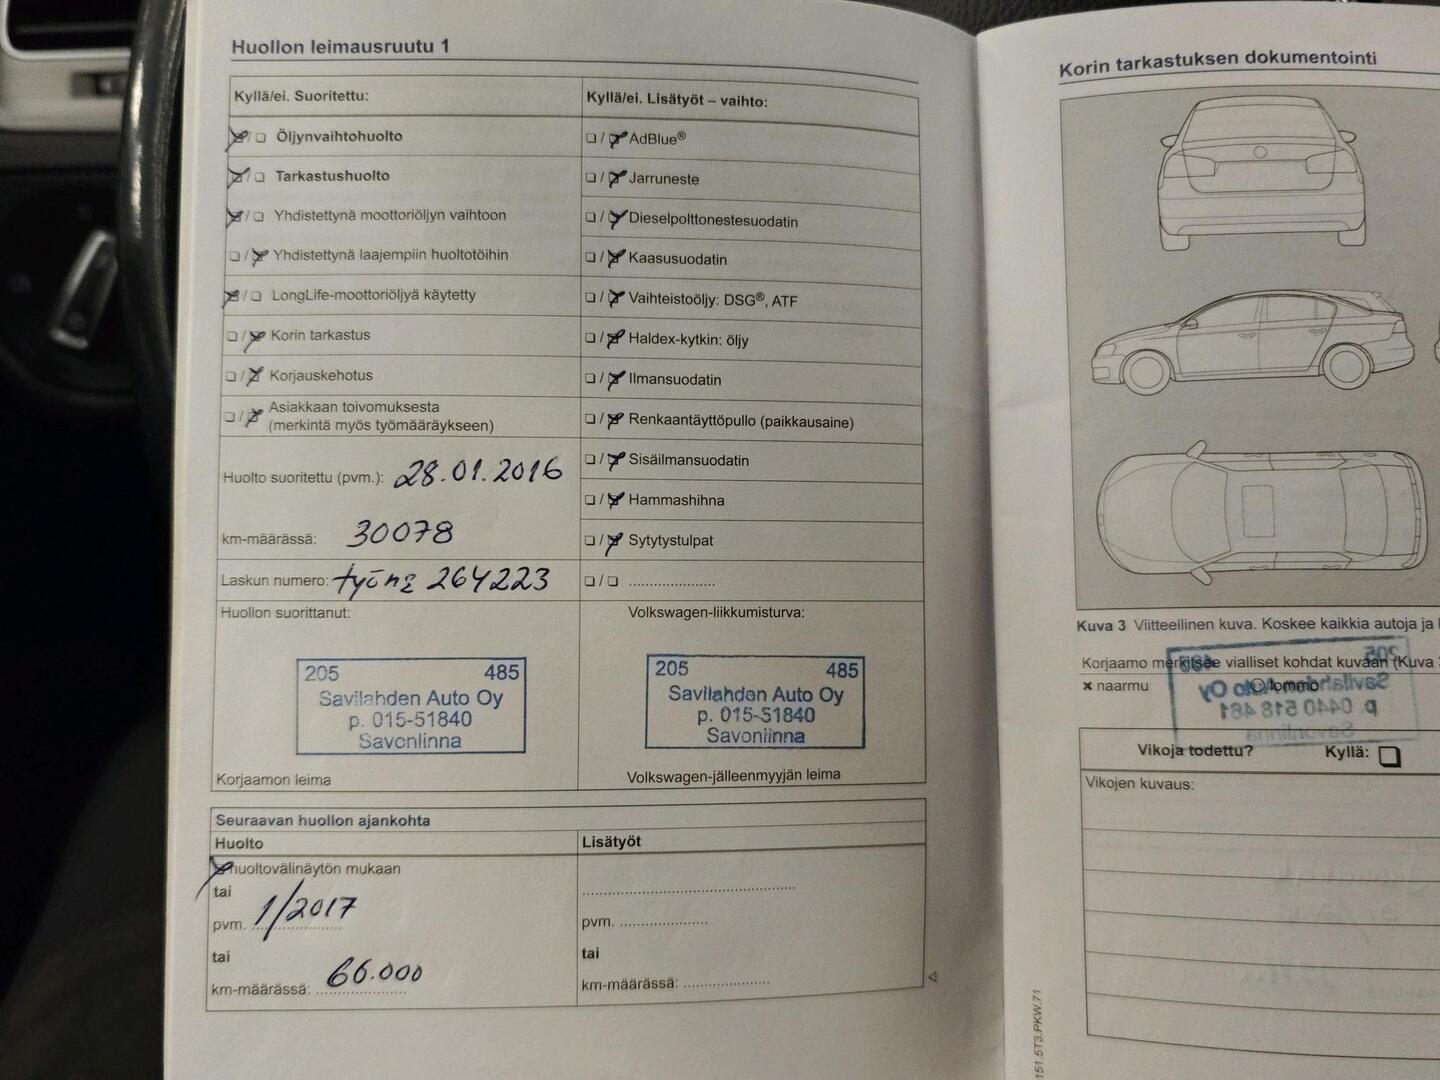 Huollon leimausruutu 1
Kyllä/ei. Suoritettu:
Öljynvaihtohuolto
Tarkastushuolto
Yhdistettynä moottoriöljyn vaihtoon
Yhdistettynä laajempiin huoltotöihin
LongLife-moottoriöljyä käytetty
Korin tarkastus
Korjauskehotus
Asiakkaan toivomuksesta
(merkintä myös työmääräykseen)
Huolto suoritettu (pvm.): 28.01.2016
km-määrässä: 30078
Laskun numero: työnº 264223
Huollon suorittanut:
205 485
Savilahden Auto Oy
p. 015-51840
Savonlinna
Korjaamon leima
Kyllä/ei. Lisätyöt – vaihto:
AdBlue®
Jarruneste
Dieselpolttonestesuodatin
Kaasusuodatin
Vaihteistoöljy: DSG®, ATF
Haldex-kytkin: öljy
Ilmansuodatin
Renkaantäyttöpullo (paikkausaine)
Sisäilmansuodatin
Hammashihna
Sytytystulpat
Volkswagen-liikkumisturva:
205 485
Savilahden Auto Oy
p. 015-51840
Savonlinna
Volkswagen-jälleenmyyjän leima
Seuraavan huollon ajankohta
Huolto
huoltovälinäytön mukaan
tai
pvm. 1/2017
tai
km-määrässä: 66.000
Lisätyöt
pvm.
tai
km-määrässä:
Korin tarkastuksen dokumentointi
Kuva 3 Viitteellinen kuva. Koskee kaikkia autoja ja
Korjaamo merkitsee vialliset kohdat kuvaan (Kuva
x naarmu lommo
205
Savilahden Auto Oy
p. 0440 518 481
Savonlinna
Vikoja todettu? Kyllä:
Vikojen kuvaus:
151.5T3.PKW.71